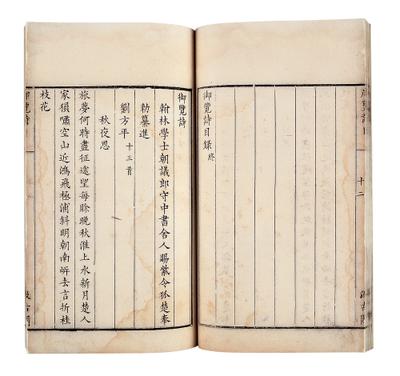 御覽詩目
十二
御覽詩目錄終
御覽詩
翰林學士朝議郎守中書舍人賜紫令狐楚奉
勅纂進
劉方平 十三首
秋夜思
旅夢何時盡征途望每賒晚秋淮上水新月楚人
家猿嘯空山近鴻飛極浦斜明朝南岸去言折桂
枝花
御覽詩